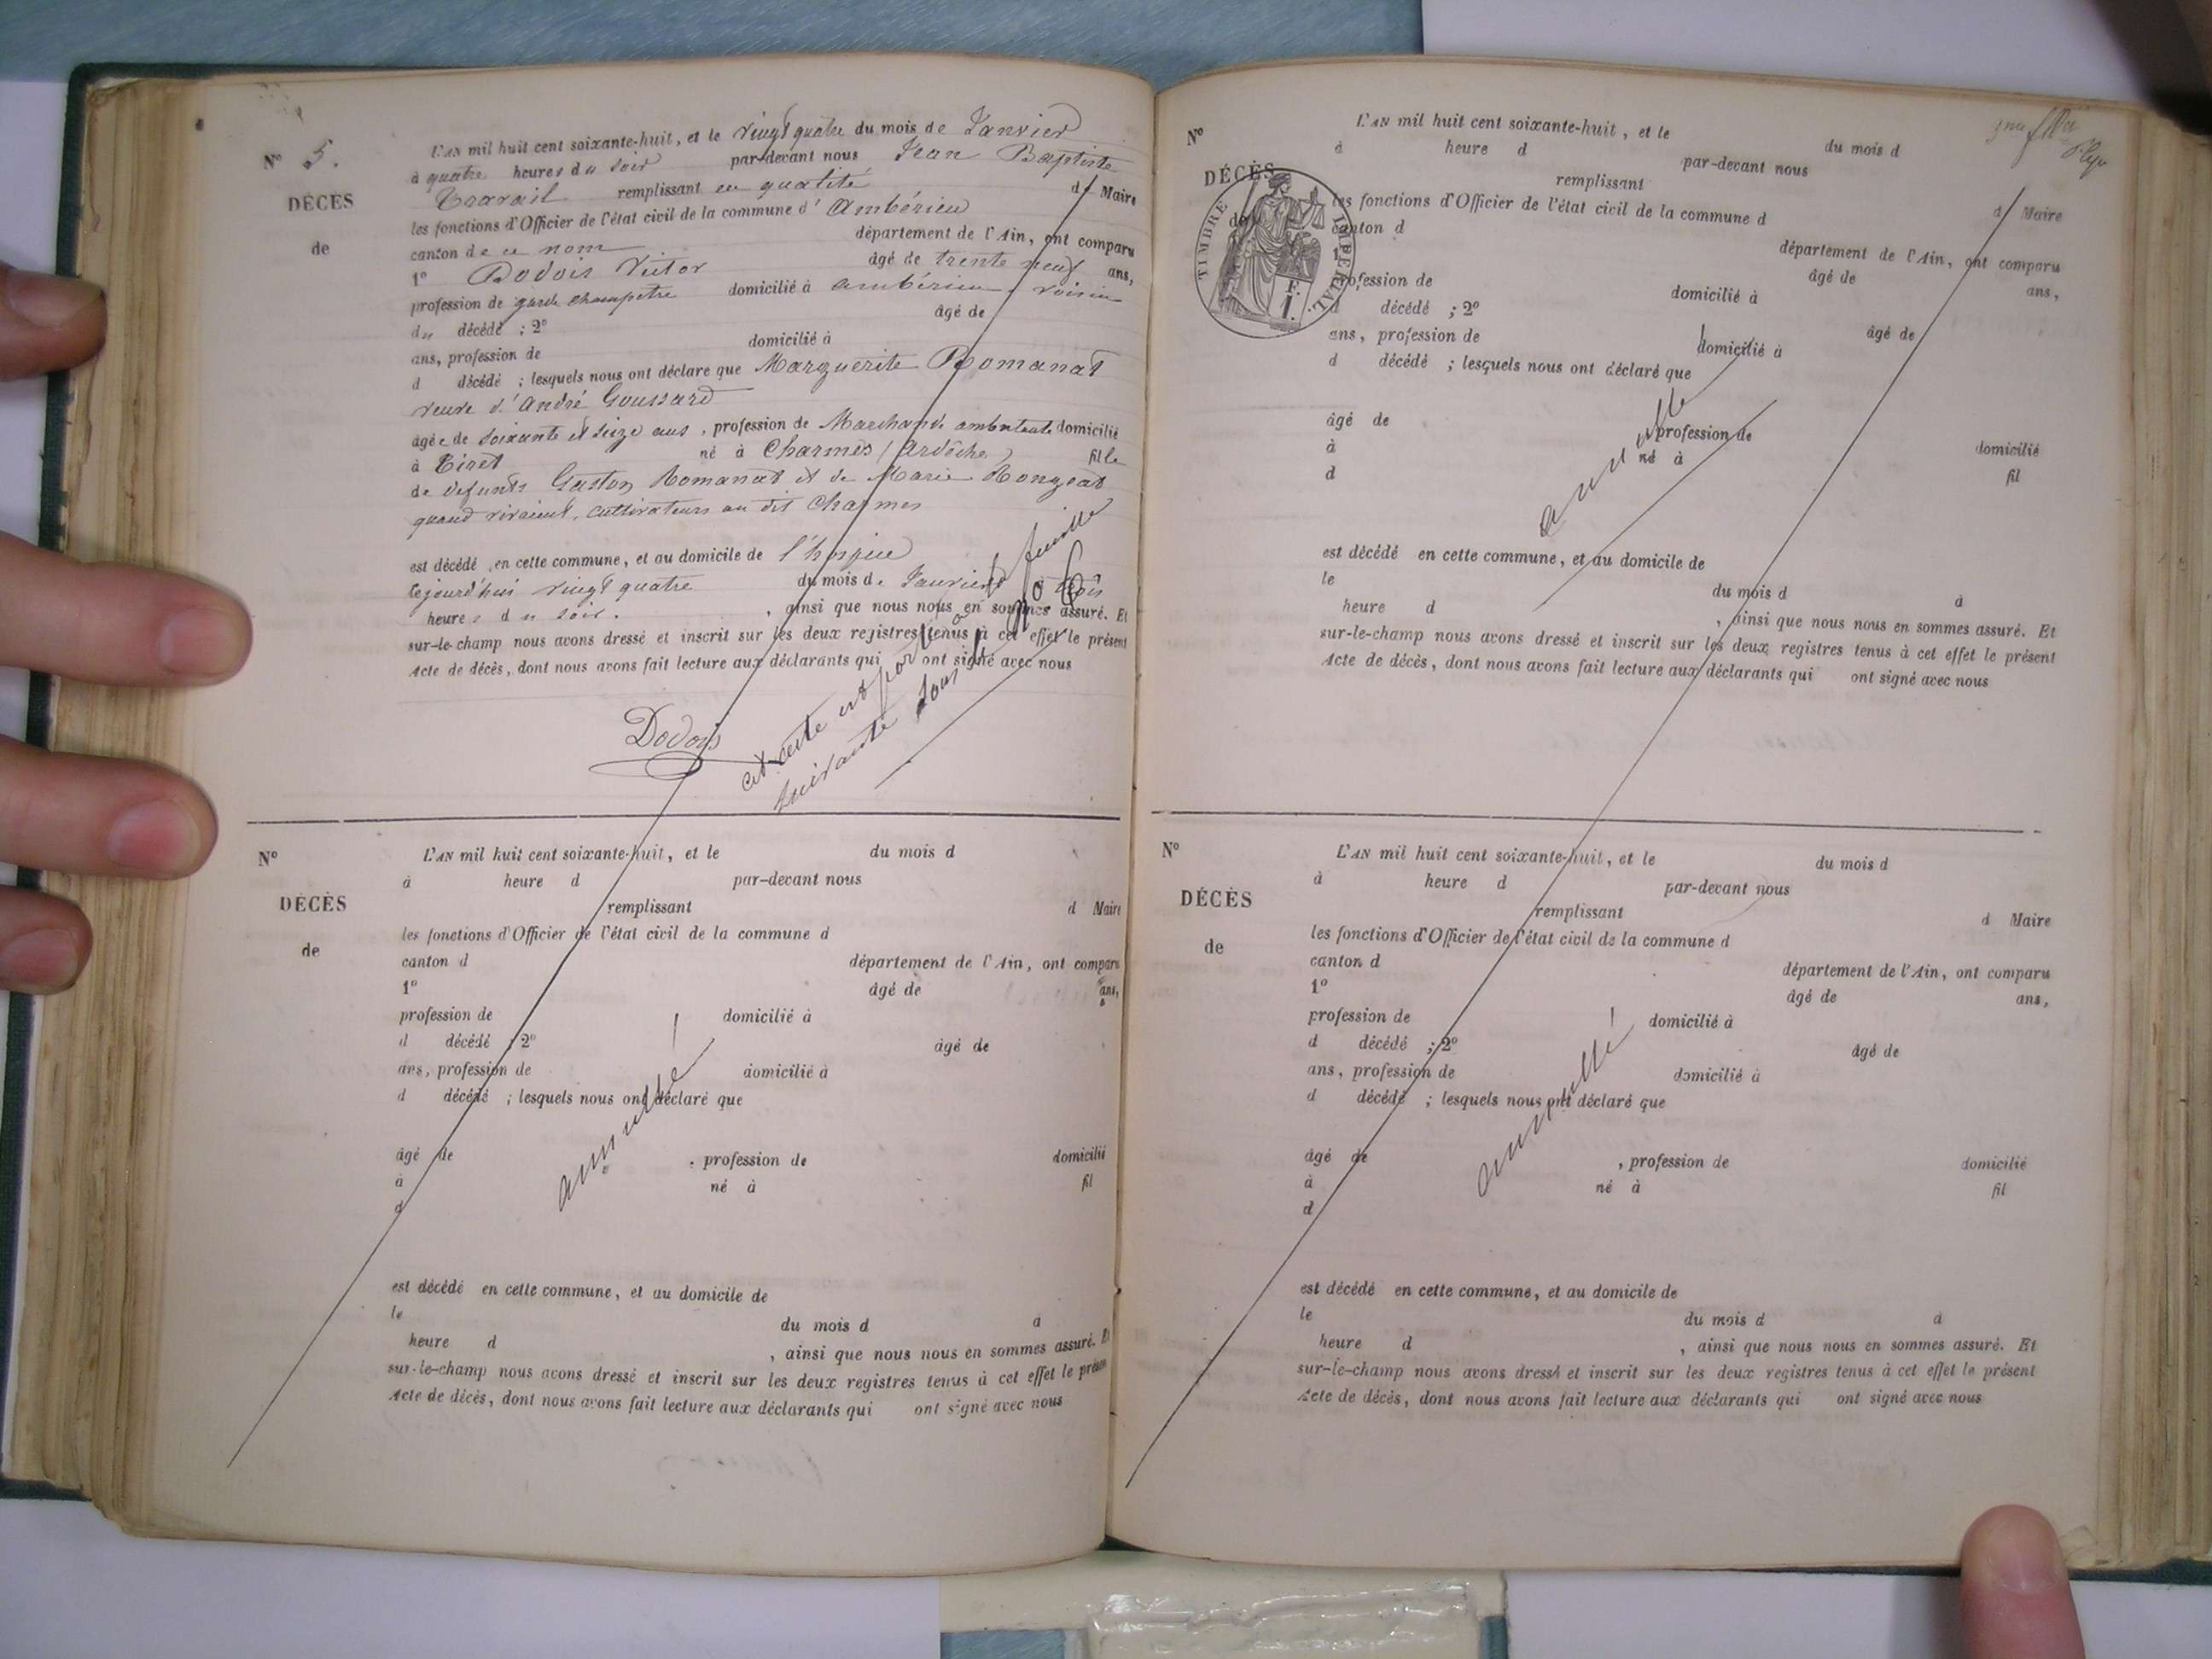 N° 5.
DÉCÈS
de
L'AN mil huit cent soixante-huit, et le vingt quatre du mois de Janvier
à quatre heures du soir par-devant nous Jean Baptiste
Travail remplissant en qualité de Maire
les fonctions d'Officier de l'état civil de la commune d'Ambérieu
canton de ce nom département de l'Ain, ont comparu
1° Dodois Victor âgé de trente neuf ans,
profession de garde champêtre domicilié à ambérieu, voisin
du décédé ; 2° âgé de
ans, profession de domicilié à
d décédé ; lesquels nous ont déclaré que Marguerite Romanat
veuve d'André Goussard
âgée de soixante et seize ans, profession de Marchande ambulante domicilié
à Tiret né à Charmes (Ardèche) fille
de defunts Gaston Romanat et de Marie Rongeat
quand vivaient, cultivateurs au dit Charmes
est décédé en cette commune, et au domicile de l'hospice
cejourd'hui vingt quatre du mois de Janvier à trois
heures du soir. , ainsi que nous nous en sommes assuré. Et
sur-le-champ nous avons dressé et inscrit sur les deux registres tenus à cet effet le présent
Acte de décès, dont nous avons fait lecture aux déclarants qui ont signé avec nous
Dodois
cet acte est porté à la feuille
suivante sous
N°
DÉCÈS
de
L'AN mil huit cent soixante-huit, et le du mois d
à heure d par-devant nous
remplissant d Maire
les fonctions d'Officier de l'état civil de la commune d
canton d département de l'Ain, ont comparu
1° âgé de ans,
profession de domicilié à
d décédé ; 2° âgé de
ans, profession de domicilié à
d décédé ; lesquels nous ont déclaré que
annullé
âgé de , profession de domicilié
à né à fil
d
est décédé en cette commune, et au domicile de
le du mois d à
heure d , ainsi que nous nous en sommes assuré. Et
sur-le-champ nous avons dressé et inscrit sur les deux registres tenus à cet effet le présent
Acte de décès, dont nous avons fait lecture aux déclarants qui ont signé avec nous
N°
DÉCÈS
de
TIMBRE IMPÉRIAL
1 F.
L'AN mil huit cent soixante-huit, et le du mois d
à heure d par-devant nous
remplissant d Maire
les fonctions d'Officier de l'état civil de la commune d
canton d département de l'Ain, ont comparu
1° âgé de ans,
profession de domicilié à
d décédé ; 2° âgé de
ans, profession de domicilié à
d décédé ; lesquels nous ont déclaré que
annullé
âgé de profession de domicilié
à né à fil
d
est décédé en cette commune, et au domicile de
le du mois d à
heure d , ainsi que nous nous en sommes assuré. Et
sur-le-champ nous avons dressé et inscrit sur les deux registres tenus à cet effet le présent
Acte de décès, dont nous avons fait lecture aux déclarants qui ont signé avec nous
N°
DÉCÈS
de
L'AN mil huit cent soixante-huit, et le du mois d
à heure d par-devant nous
remplissant d Maire
les fonctions d'Officier de l'état civil de la commune d
canton d département de l'Ain, ont comparu
1° âgé de ans,
profession de domicilié à
d décédé ; 2° âgé de
ans, profession de domicilié à
d décédé ; lesquels nous ont déclaré que
annullé
âgé de , profession de domicilié
à né à fil
d
est décédé en cette commune, et au domicile de
le du mois d à
heure d , ainsi que nous nous en sommes assuré. Et
sur-le-champ nous avons dressé et inscrit sur les deux registres tenus à cet effet le présent
Acte de décès, dont nous avons fait lecture aux déclarants qui ont signé avec nous